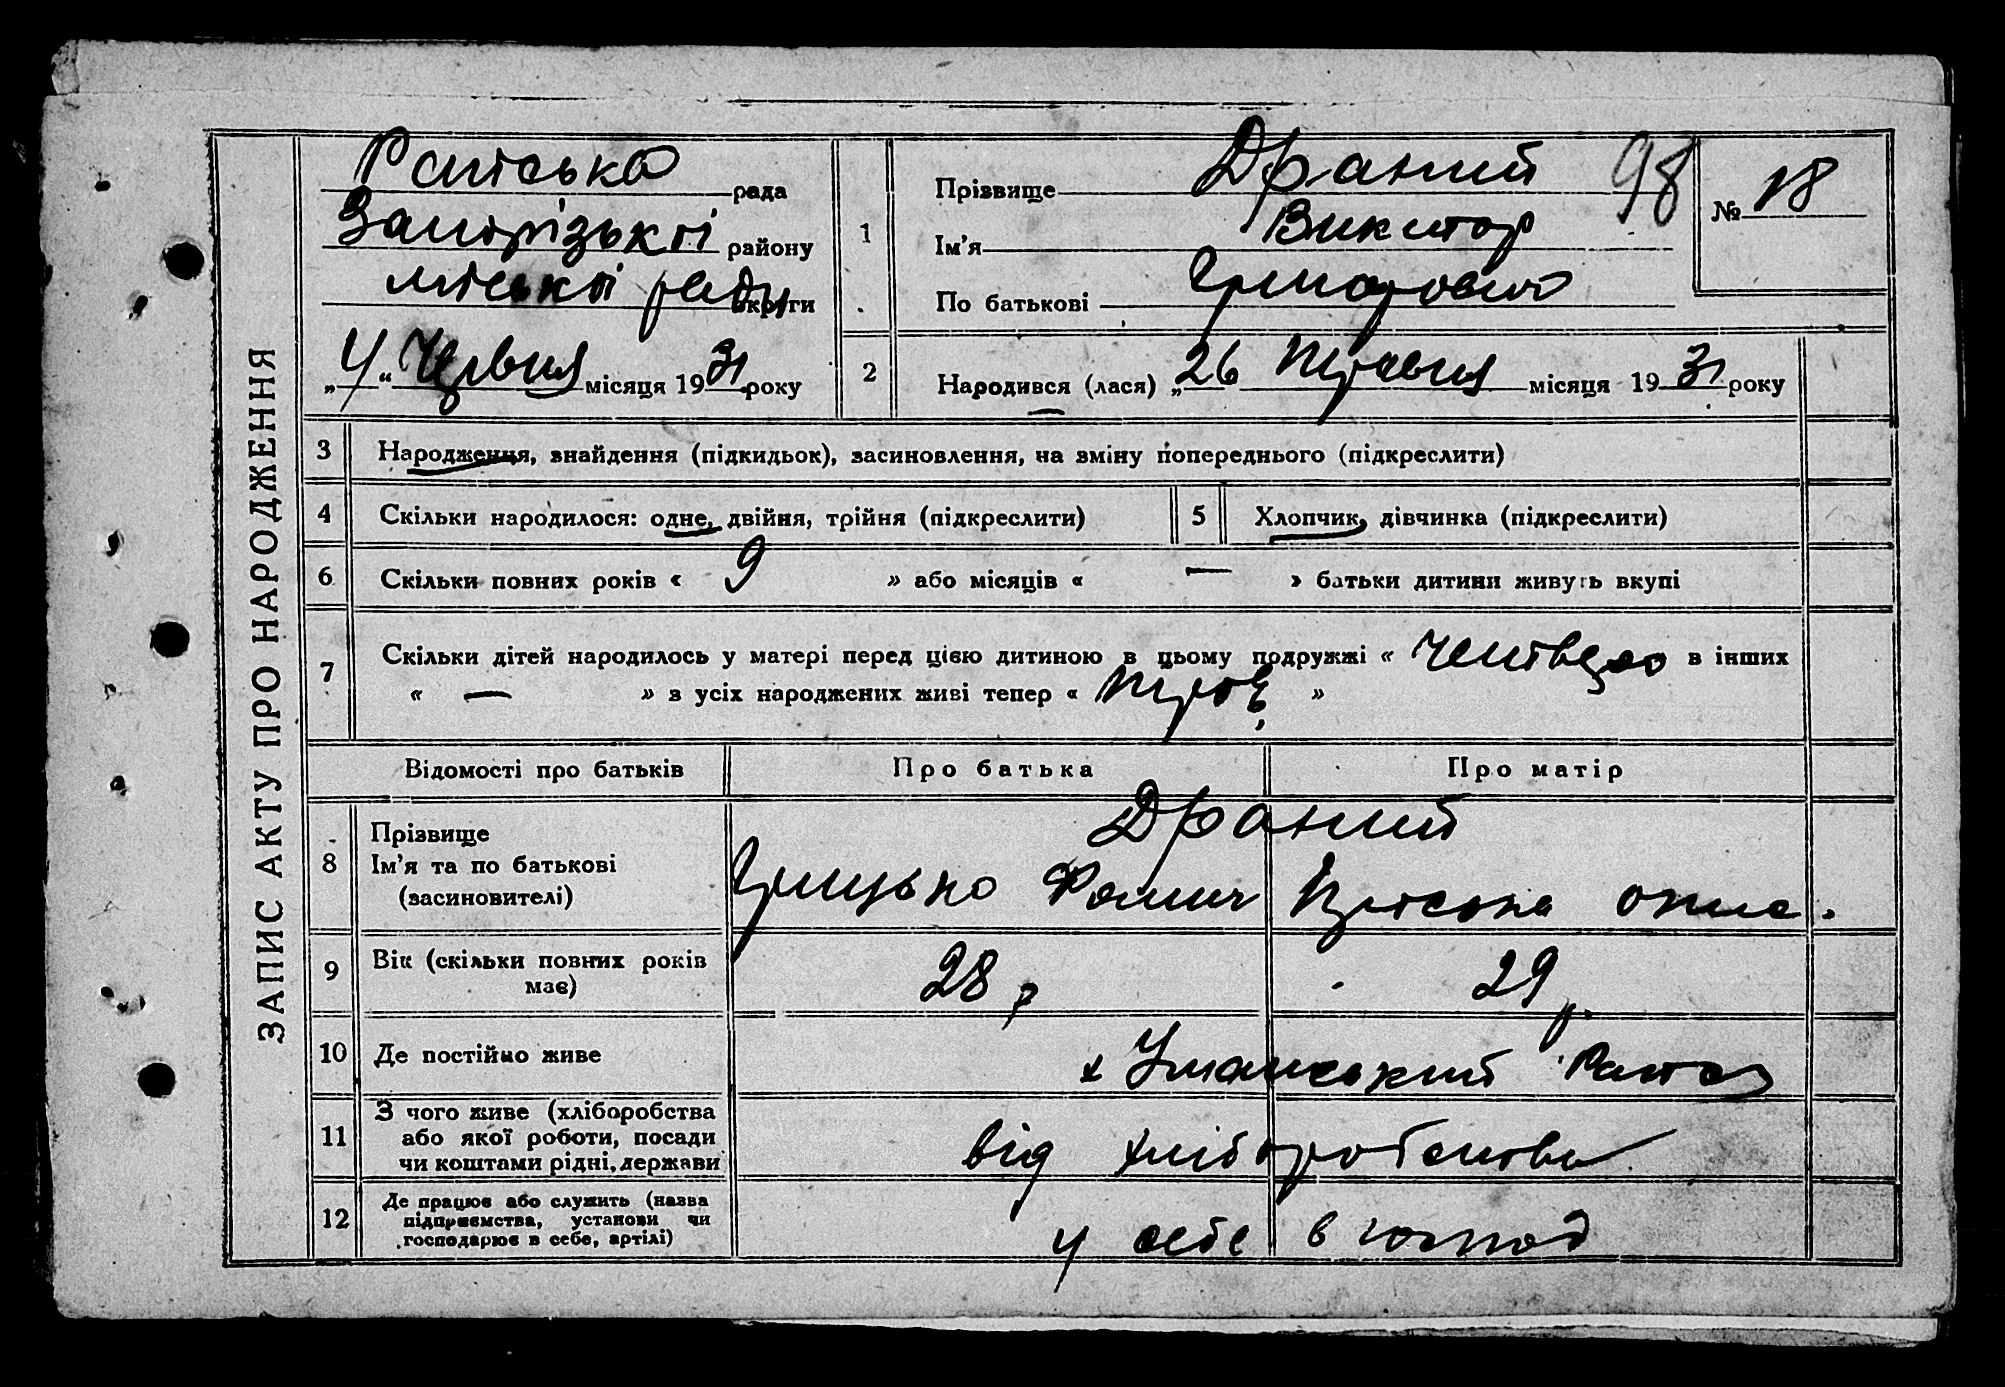 ЗАПИС АКТУ ПРО НАРОДЖЕННЯ
рада
Запорізької району
міської ради округи
„4“ Червня місяця 1931 року
1
Прізвище Драний 98
Ім'я Виктор
По батькові
№ 18
2
Народився (лася) „26 Травня місяця 1931 року
3 Народження, знайдення (підкидьок), засиновлення, на зміну попереднього (підкреслити)
4 Скільки народилося: одне, двійня, трійня (підкреслити)
5 Хлопчик, дівчинка (підкреслити)
6 Скільки повних років « 9 » або місяців « — » батьки дитини живуть вкупі
7 Скільки дітей народилось у матері перед цією дитиною в цьому подружжі « Четверо в інших
« — » з усіх народжених живі тепер « Троє »
Відомості про батьків Про батька Про матір
8 Прізвище Драний
Ім'я та по батькові Грицько Фомич
(засиновителі)
9 Вік (скільки повних років 28 р 29 р.
має)
10 Де постійно живе х Уманський
11 З чого живе (хліборобства
або якої роботи, посади від хліборобства
чи коштами рідні, держави
12 Де працює або служить (назва
підприємства, установи чи у себе в господ
господарює в себе, артілі)